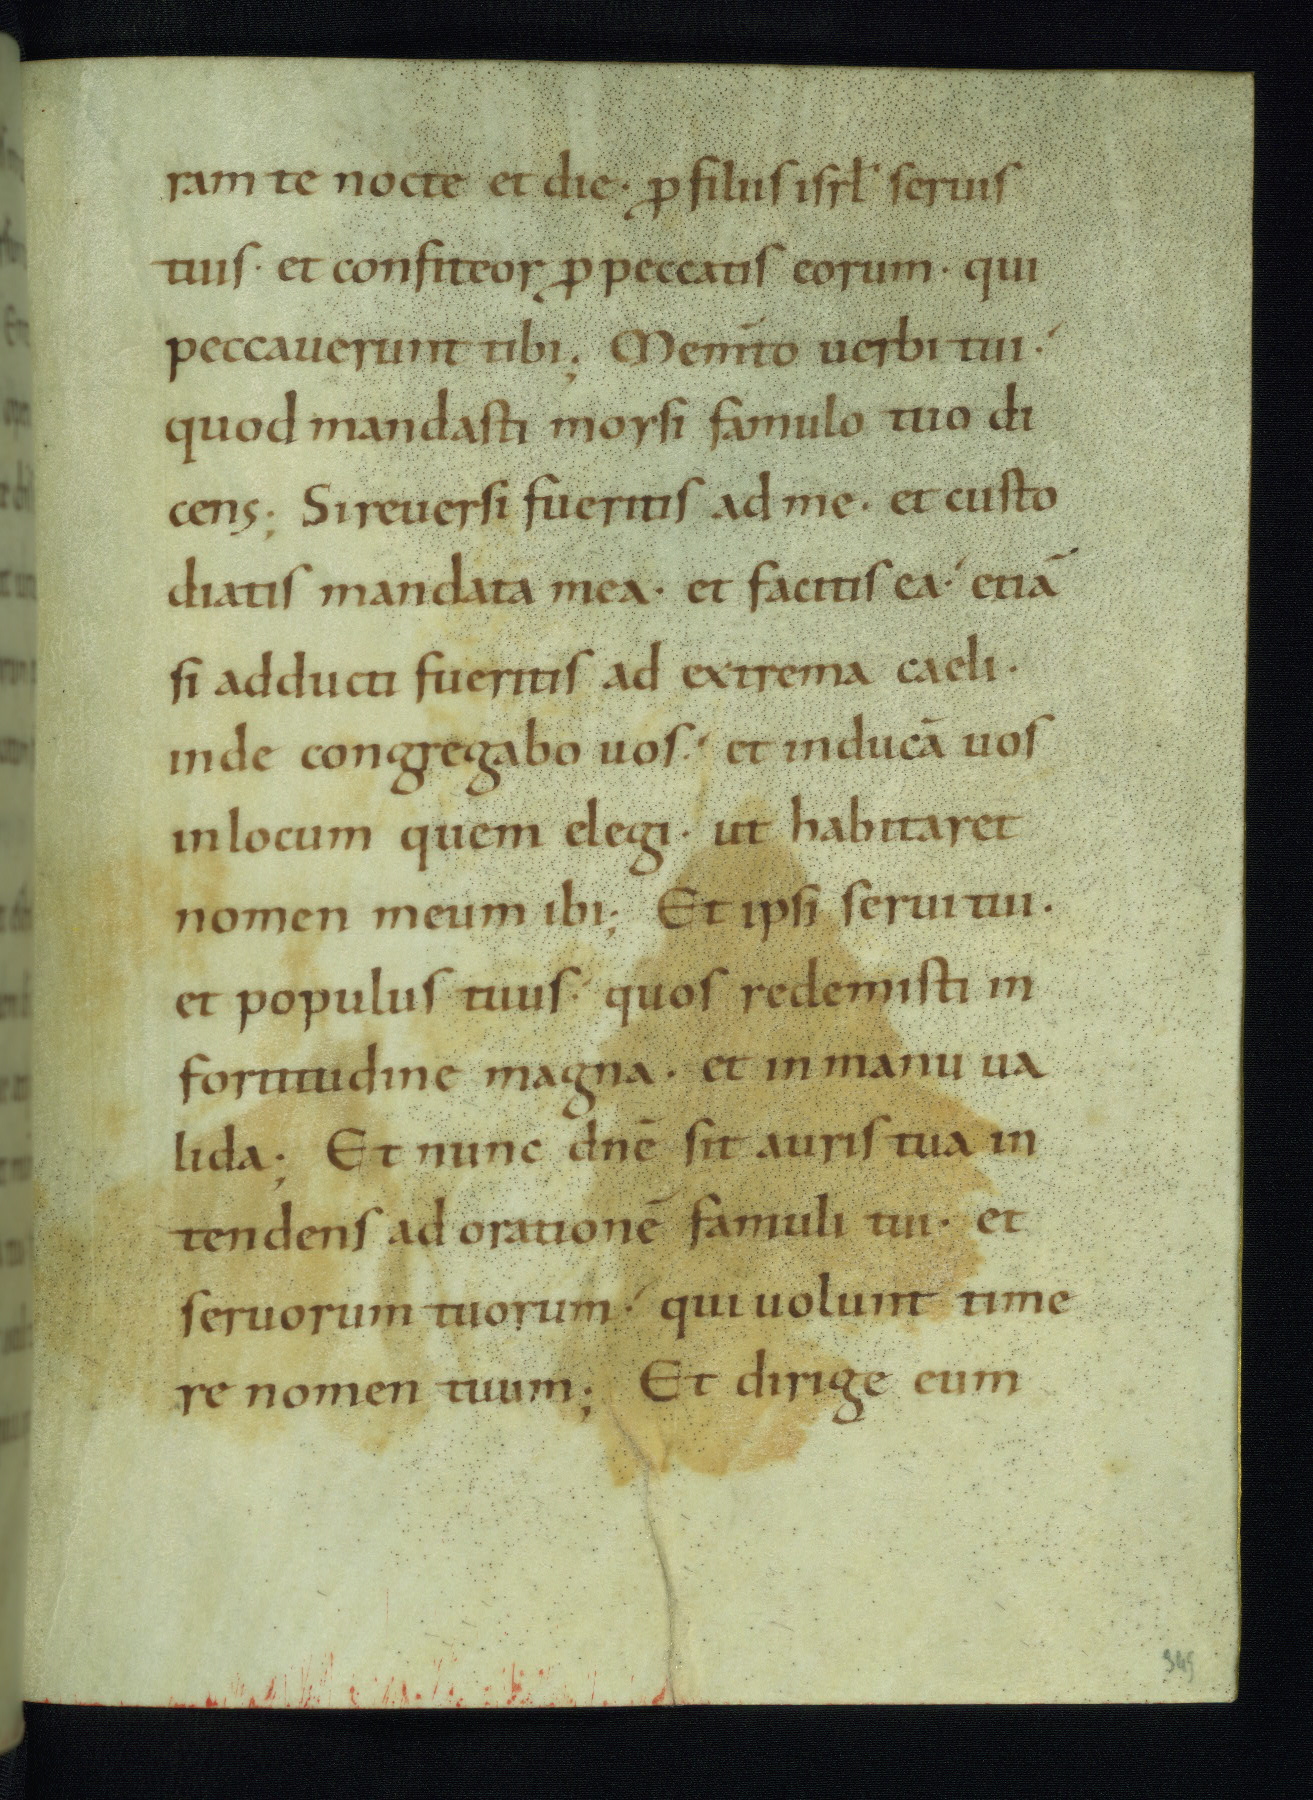 ram te nocte et die· ꝓ filiis isrł seruis
tuis· et confiteor ꝓ peccatis eorum· qui
peccauerunt tibi; Mem̄to uerbi tui·
quod mandasti moysi famulo tuo di
cens; Si reuersi fueritis ad me· et custo
diatis mandata mea· et facitis ea· etiā
si adducti fueritis ad extrema caeli·
inde congregabo uos· et inducā uos
in locum quem elegi· ut habitaret
nomen meum ibi; Et ipsi serui tui·
et populus tuus· quos redemisti in
fortitudine magna· et in manu ua
lida; Et nunc dnē sit auris tua in
tendens ad orationē famuli tui· et
seruorum tuorum· qui uolunt time
re nomen tuum; Et dirige eum
349